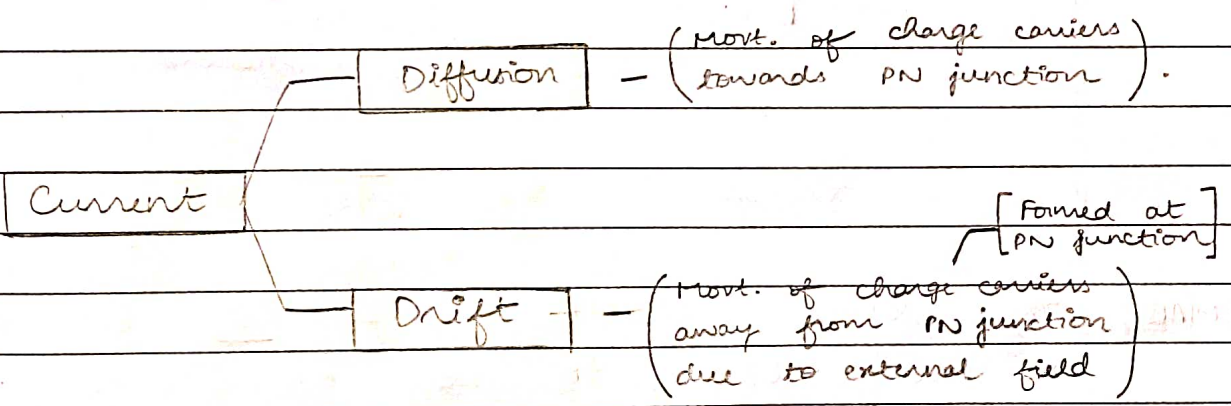 Diffusion - (Movt. of charge carriers
towards PN junction).
Current
[Formed at
PN junction]
Drift - (Movt. of charge carriers
away from PN junction
due to external field)